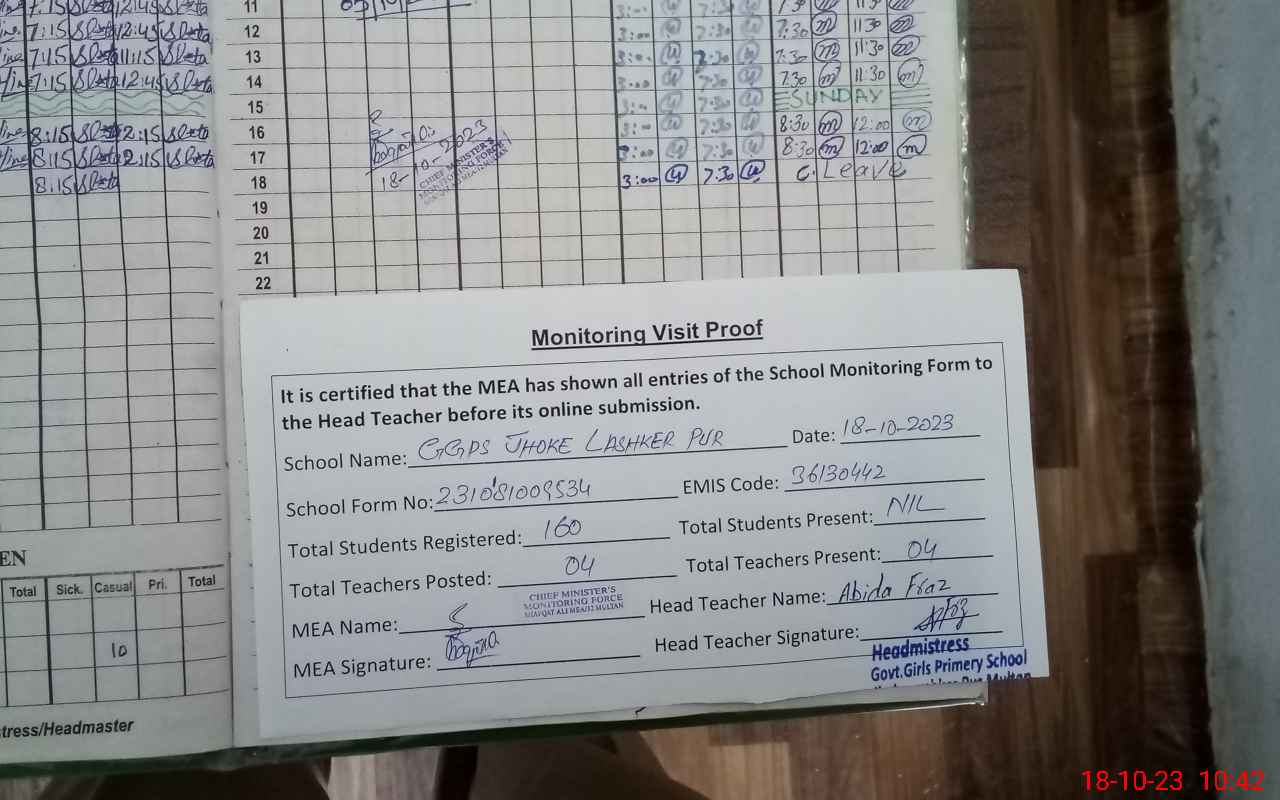 7:15 12:45 11
7:15 12:45 12 3:00 7:30 7:30 m 11:30 m
7:15 11:15 13 3:00 7:30 7:30 m 11:30 m
7:15 12:45 14 3:00 7:30 7:30 m 11:30 m
15 7:30 SUNDAY
8:15 2:15 16 3:00 7:30 8:30 m 12:00 m
8:15 2:15 17 3:00 7:30 8:30 m 12:00 m
8:15 18 3:00 7:30 C. Leave
18-10-2023
CHIEF MINISTER'S
MONITORING FORCE
19
20
21
22
Monitoring Visit Proof
It is certified that the MEA has shown all entries of the School Monitoring Form to
the Head Teacher before its online submission.
School Name: GGPS JHOKE LASHKER PUR Date: 18-10-2023
School Form No: 231081009534 EMIS Code: 36130442
Total Students Registered: 160 Total Students Present: NIL
Total Teachers Posted: 04 Total Teachers Present: 04
CHIEF MINISTER'S
MONITORING FORCE
LIAQAT ALI MEA#12 MULTAN
MEA Name: Head Teacher Name: Abida Fraz
MEA Signature: Head Teacher Signature:
Headmistress
Govt.Girls Primery School
Pur Multan
EN
Total Sick. Casual Pri. Total
10
tress/Headmaster
18-10-23 10:42